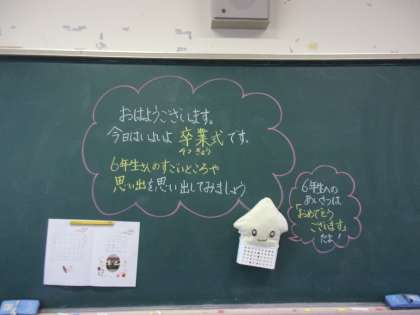 おはようございます。
今日はいよいよ 卒業式です。
6年生さんのすごいところや
思い出を思い出してみましょう
6年生への
あいさつは
「おめでとう
ございます」
だよ!